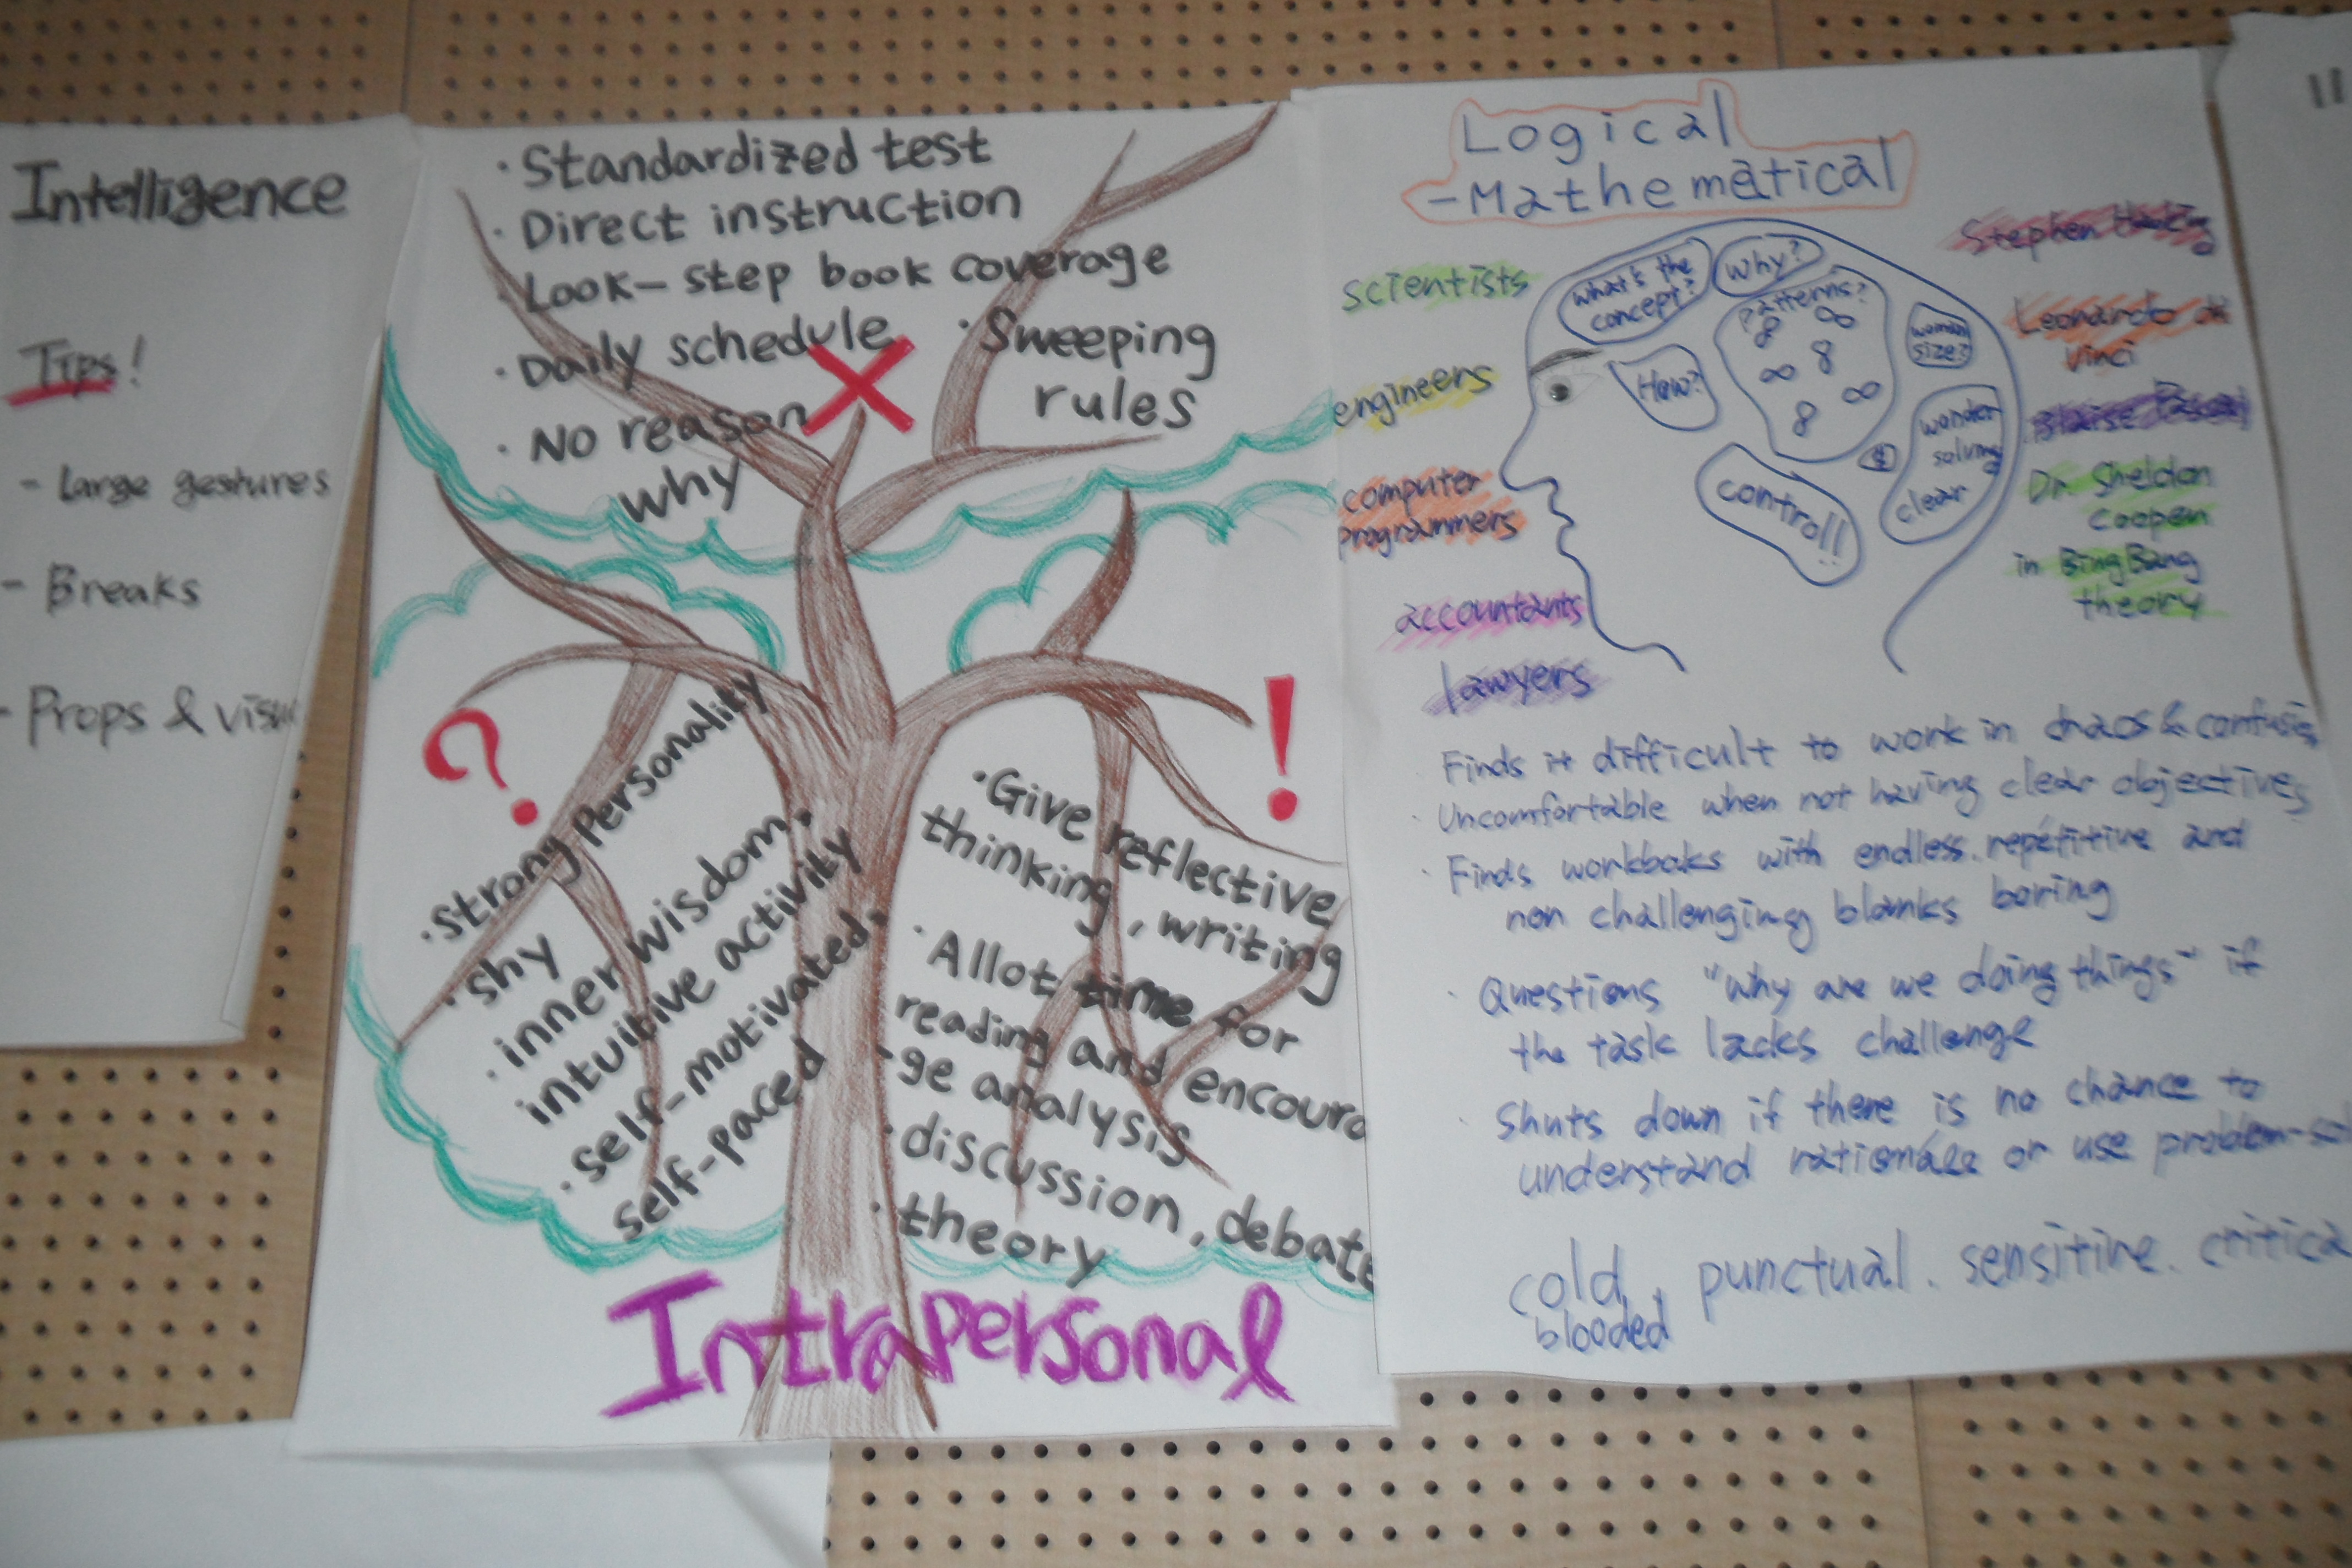 Intelligence
Tips!
- Large gestures
- Breaks
- Props & visu
· Standardized test
· Direct instruction
· Look- step book coverage
· Daily schedule
· Sweeping
rules
· No reason
why
?
· Strong Personality
· shy
· inner wisdom,
intuitive activity
· self-motivated,
self-paced
!
· Give reflective
thinking, writing
· Allot time for
reading and encoura
-ge analysis
· discussion, debate
· theory
IntraPersonal
Logical
-Mathematical
scientists
engineers
computer
programmers
accountants
lawyers
what's the
concept?
why?
patterns?
8 ∞
∞ 8
∞
8
How?
size?
wonder
solving
clear
control!!
Stephen Hawking
Leonardo di
vinci
Blaise Pascal
Dr. Sheldon
Coopen
in BingBang
theory
· Finds it difficult to work in chaos & confusion
· Uncomfortable when not having clear objectives
· Finds workboks with endless. repetitive and
non challenging blanks boring
· Questions "why are we doing things" if
the task lacks challenge
· Shuts down if there is no chance to
understand rationales or use problem-sol
cold
blooded, punctual. sensitive. critica